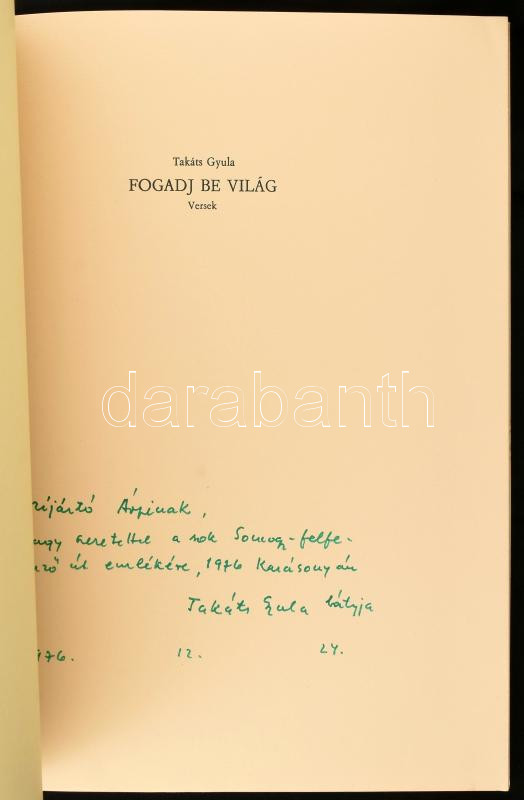 Takáts Gyula
FOGADJ BE VILÁG
Versek
darabanth
zíjártó Árpinak,
nagy szeretettel a sok Somogy-felfe-
dező út emlékére, 1976 Karácsonyán
Takáts Gyula bátyja
976. 12. 24.